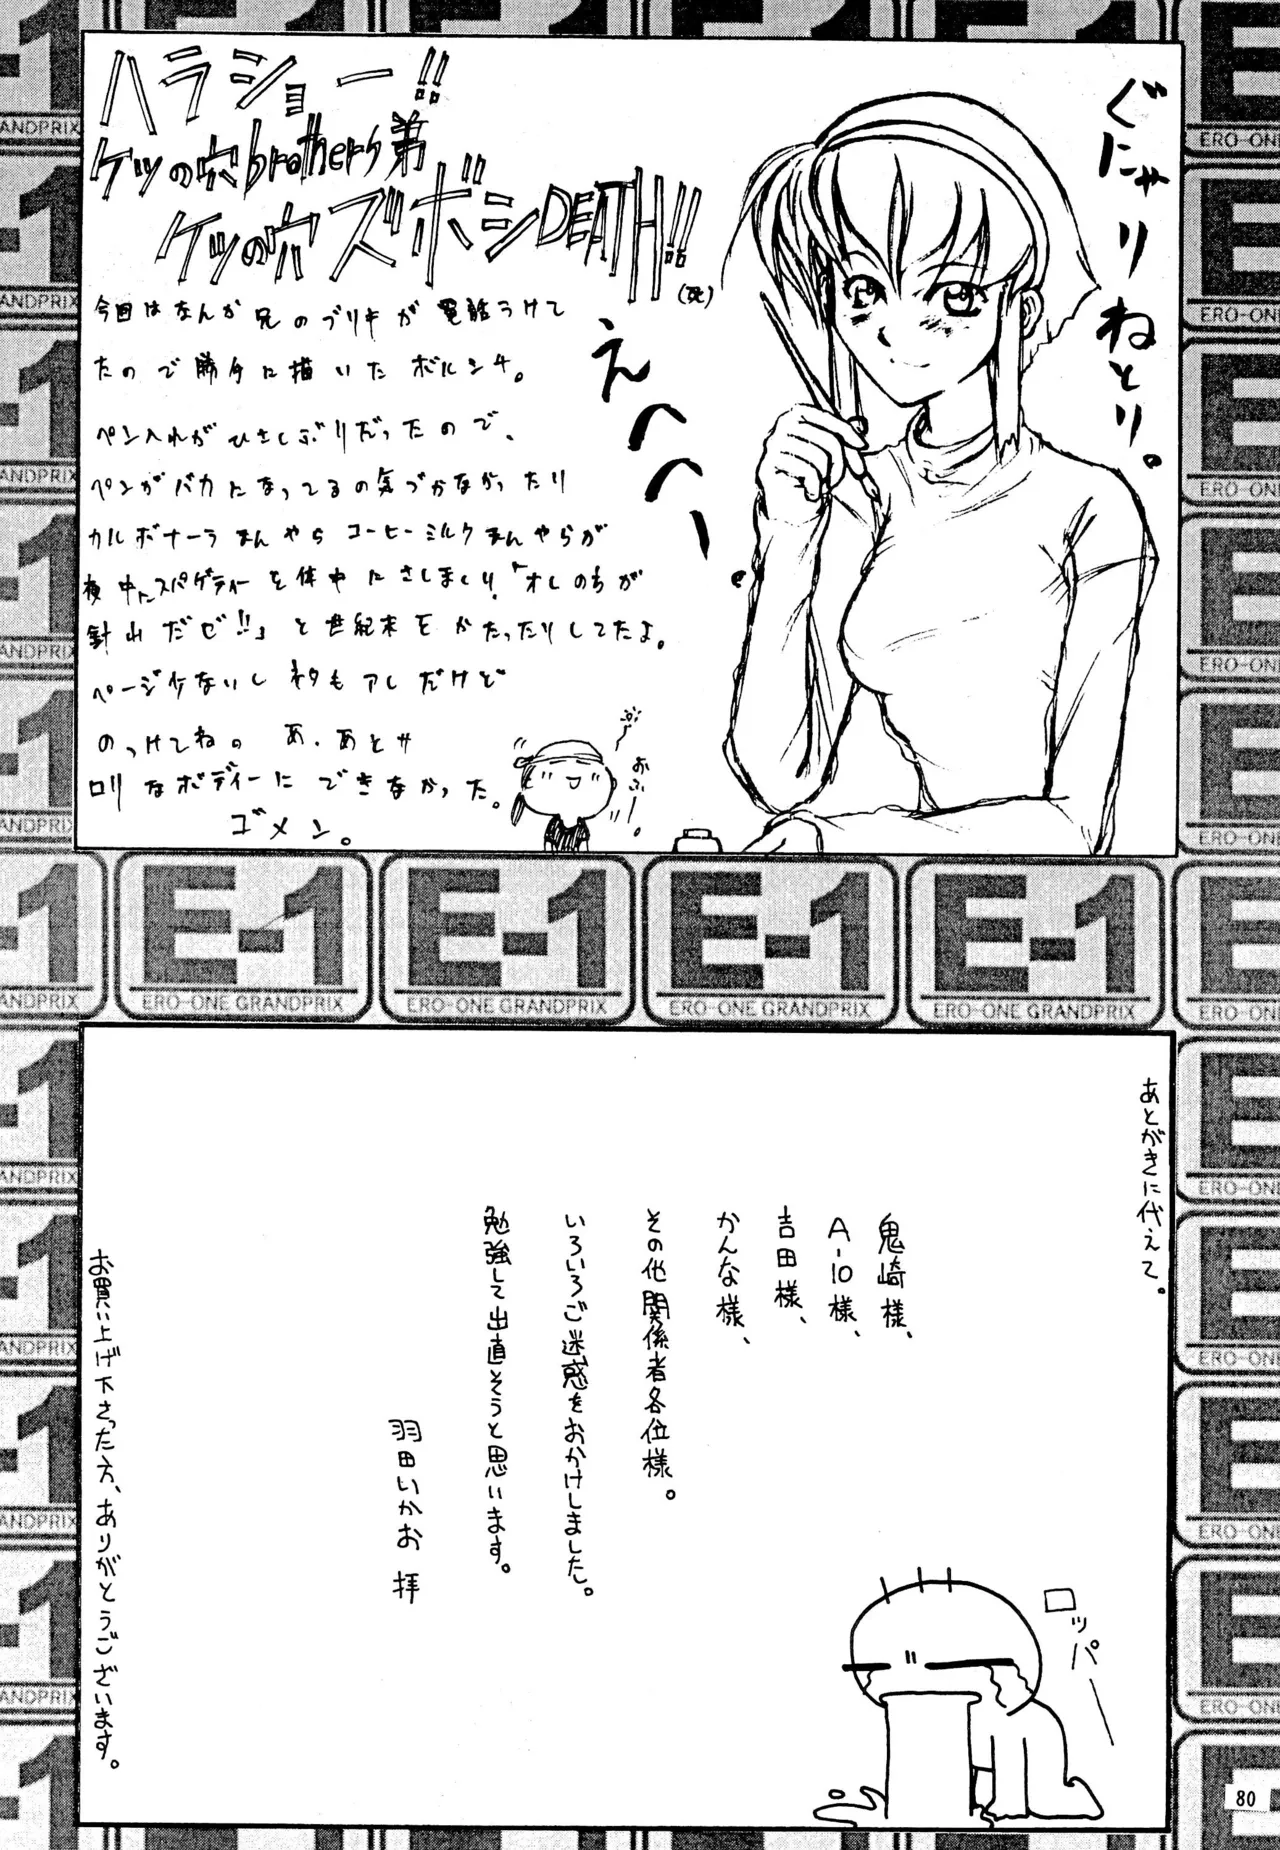 ハラショー!!
ケツの穴brothers弟
ケツの穴ズボシDEATH!!
(死)
今回はなんか兄のブリキが電話うけて
たので勝手に描いたボルシチ。
ペン入れがひさしぶりだったので、
ペンがバカになってるの気づかなかったり
カルボナーラまんやらコーヒーミルクまんやらが
夜中にスパゲティーを体中にさしまくり「オレのちが
針山だゼ!!」と世紀末をかたったりしてたよ。
ページ少ないしネタもアレだけど
のっけてね。あ、あとサ
ロリなボディーにできなかった。
ゴメン。
ぐにゃりねとり。
えへへー
おふー。
E-1
ERO-ONE GRANDPRIX
あとがきに代えて。
鬼崎様、
A-10様、
吉田様、
かんな様、
その他関係者各位様。
いろいろご迷惑をおかけしました。
勉強して出直そうと思います。
羽田いかお 拝
お買い上げ下さった方、ありがとうございます。
ロッパー
80